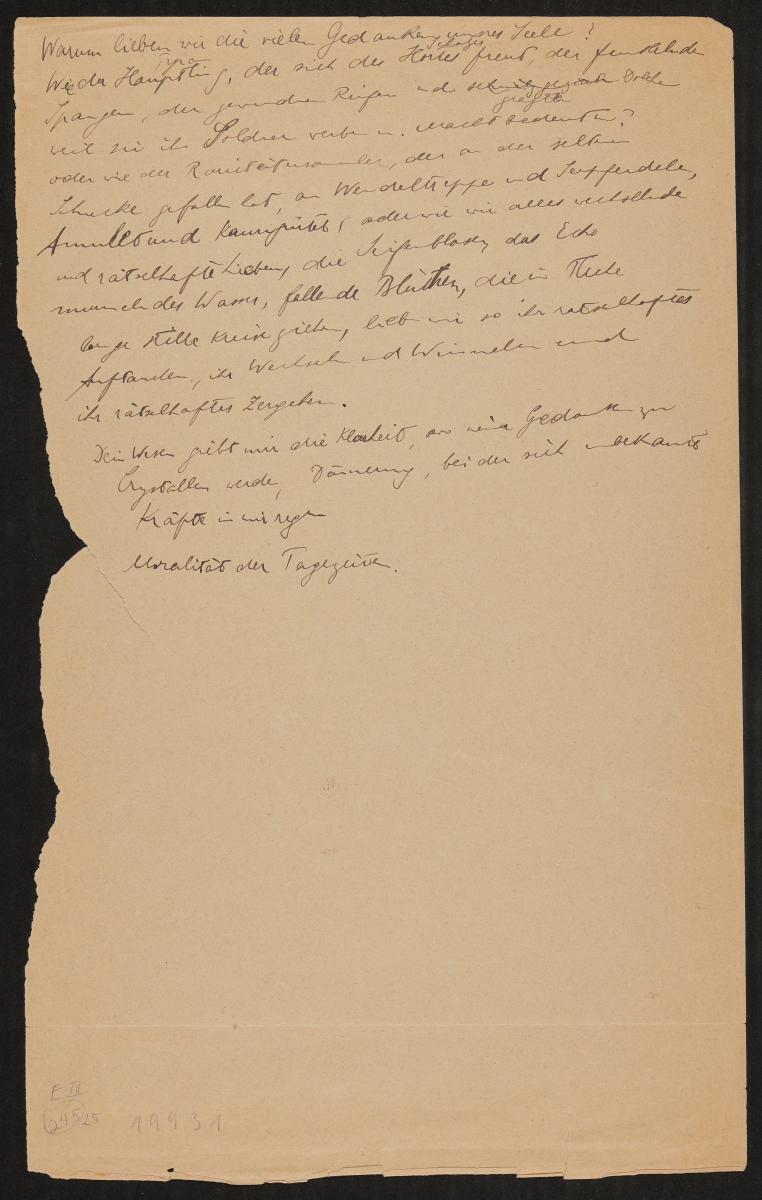 Warum lieben wir die vielen Gedanken unsres Seele?
Wie der Häuptling, der sich des Hortes freut, der funkelnden
Spangen, der gewundnen Reifen und Dolche
weil sie ihm Söldner werben u. Macht bedeuten?
oder wie der Raritätensammler, der an der seltnen
Schnecke gefallen hat, an Wendeltreppe und Seepferdchen,
Amulet und Kaurigürtel, oder wie wir alles wechselnde
und rätselhafte lieben, die Seifenblasen, das Echo
des Wassers, fallende Blüthen, die in
lange stille Kreise, lieben wir so ihr rätselhaftes
Auftauchen, ihr Wechseln und Wimmeln und
ihr rätselhaftes Zergehen.
Dein Wesen giebt mir die Klarheit, wo meine Gedanken zu
Crystallen werden, Dämmerung, bei der sich unbekannte
Kräfte in mir regen
Moralität der Tageszeiten.
E III
245 25
19931